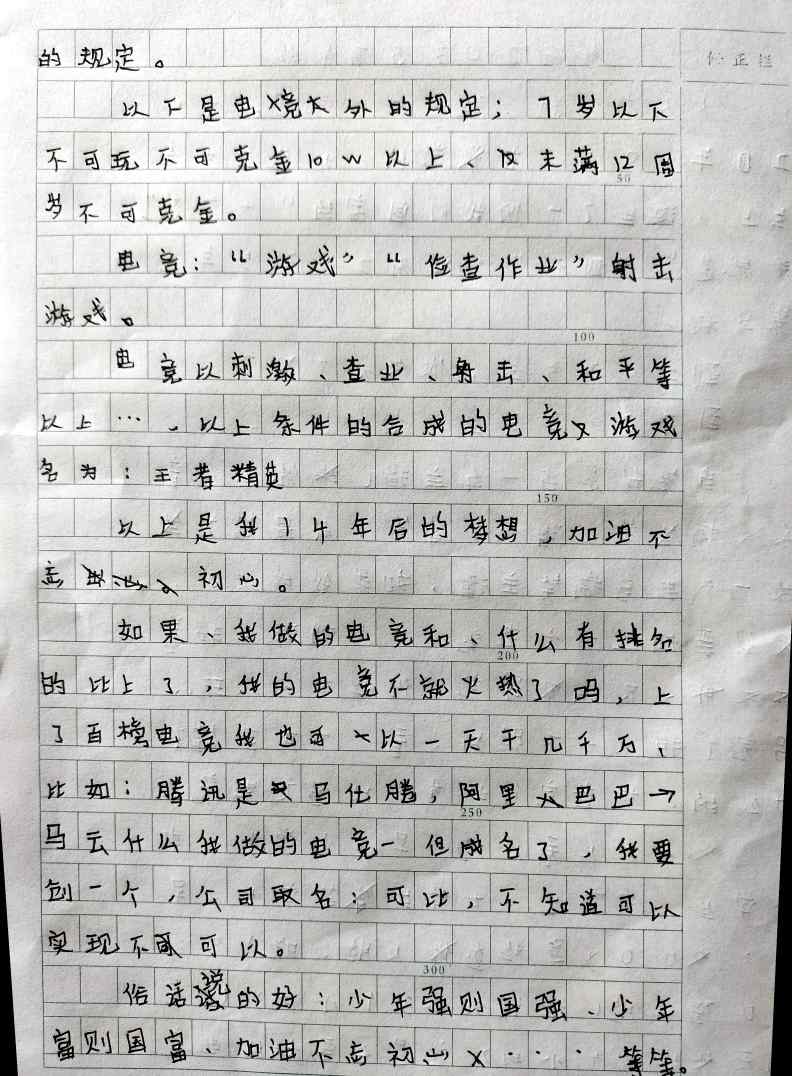 的规定。
以下是电竞大外的规定；7岁以下
不可玩不可克金10w以上、仅未满12周
50
岁不可克金。
电竞：“游戏”“俭查作业”射击
游戏。
100
电竞以刺激、查业、射击、和平等
以上…，以上条件的合成的电竞又游戏
名为：王者精英
150
以上是我14年后的梦想，加油不
忘初心。
如果、我做的电竞和、什么有排名
200
的比上了，我的电竞不就火热了吗，上
了百榜电竞我也可以一天干几千万、
比如：腾讯是马仕腾，阿里巴巴→
250
马云什么我做的电竞一但成名了，我要
创一个，公司取名：可比，不知道可以
实现不可以。
300
俗话说的好：少年强则国强、少年
富则国富、加油不忘初心 × ··· 等等。
修正栏